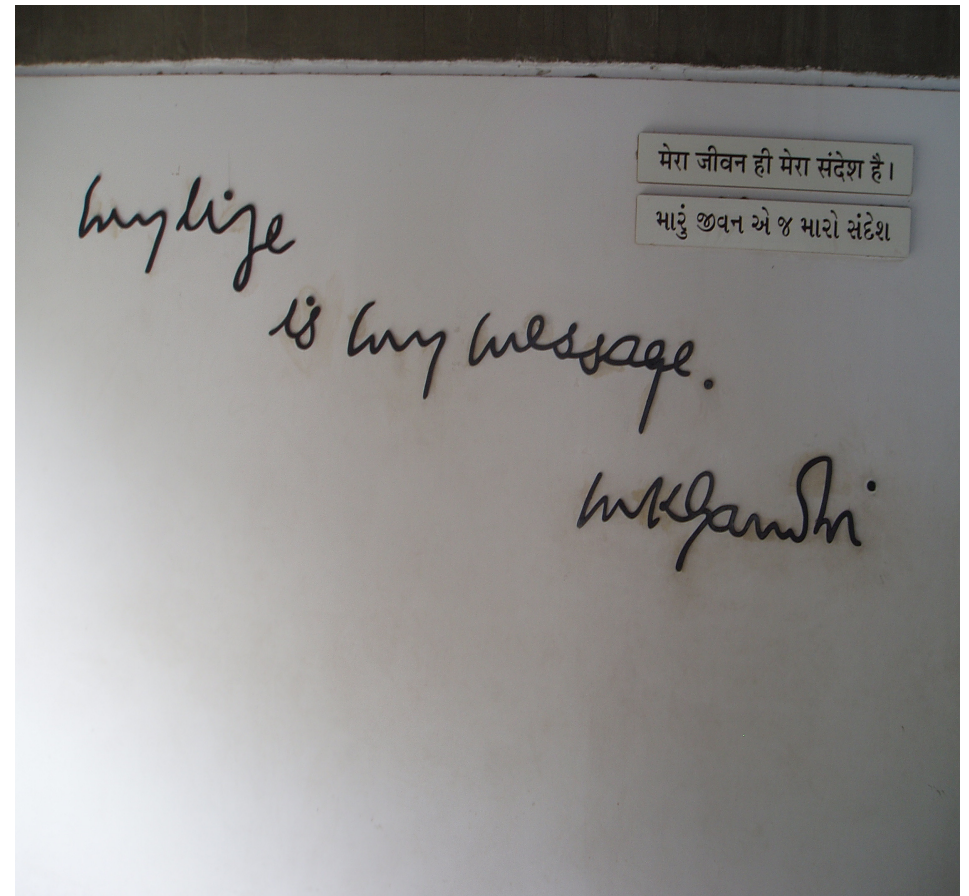 मेरा जीवन ही मेरा संदेश है।
મારું જીવન એ જ મારો સંદેશ
my life
is my message.
MKGandhi